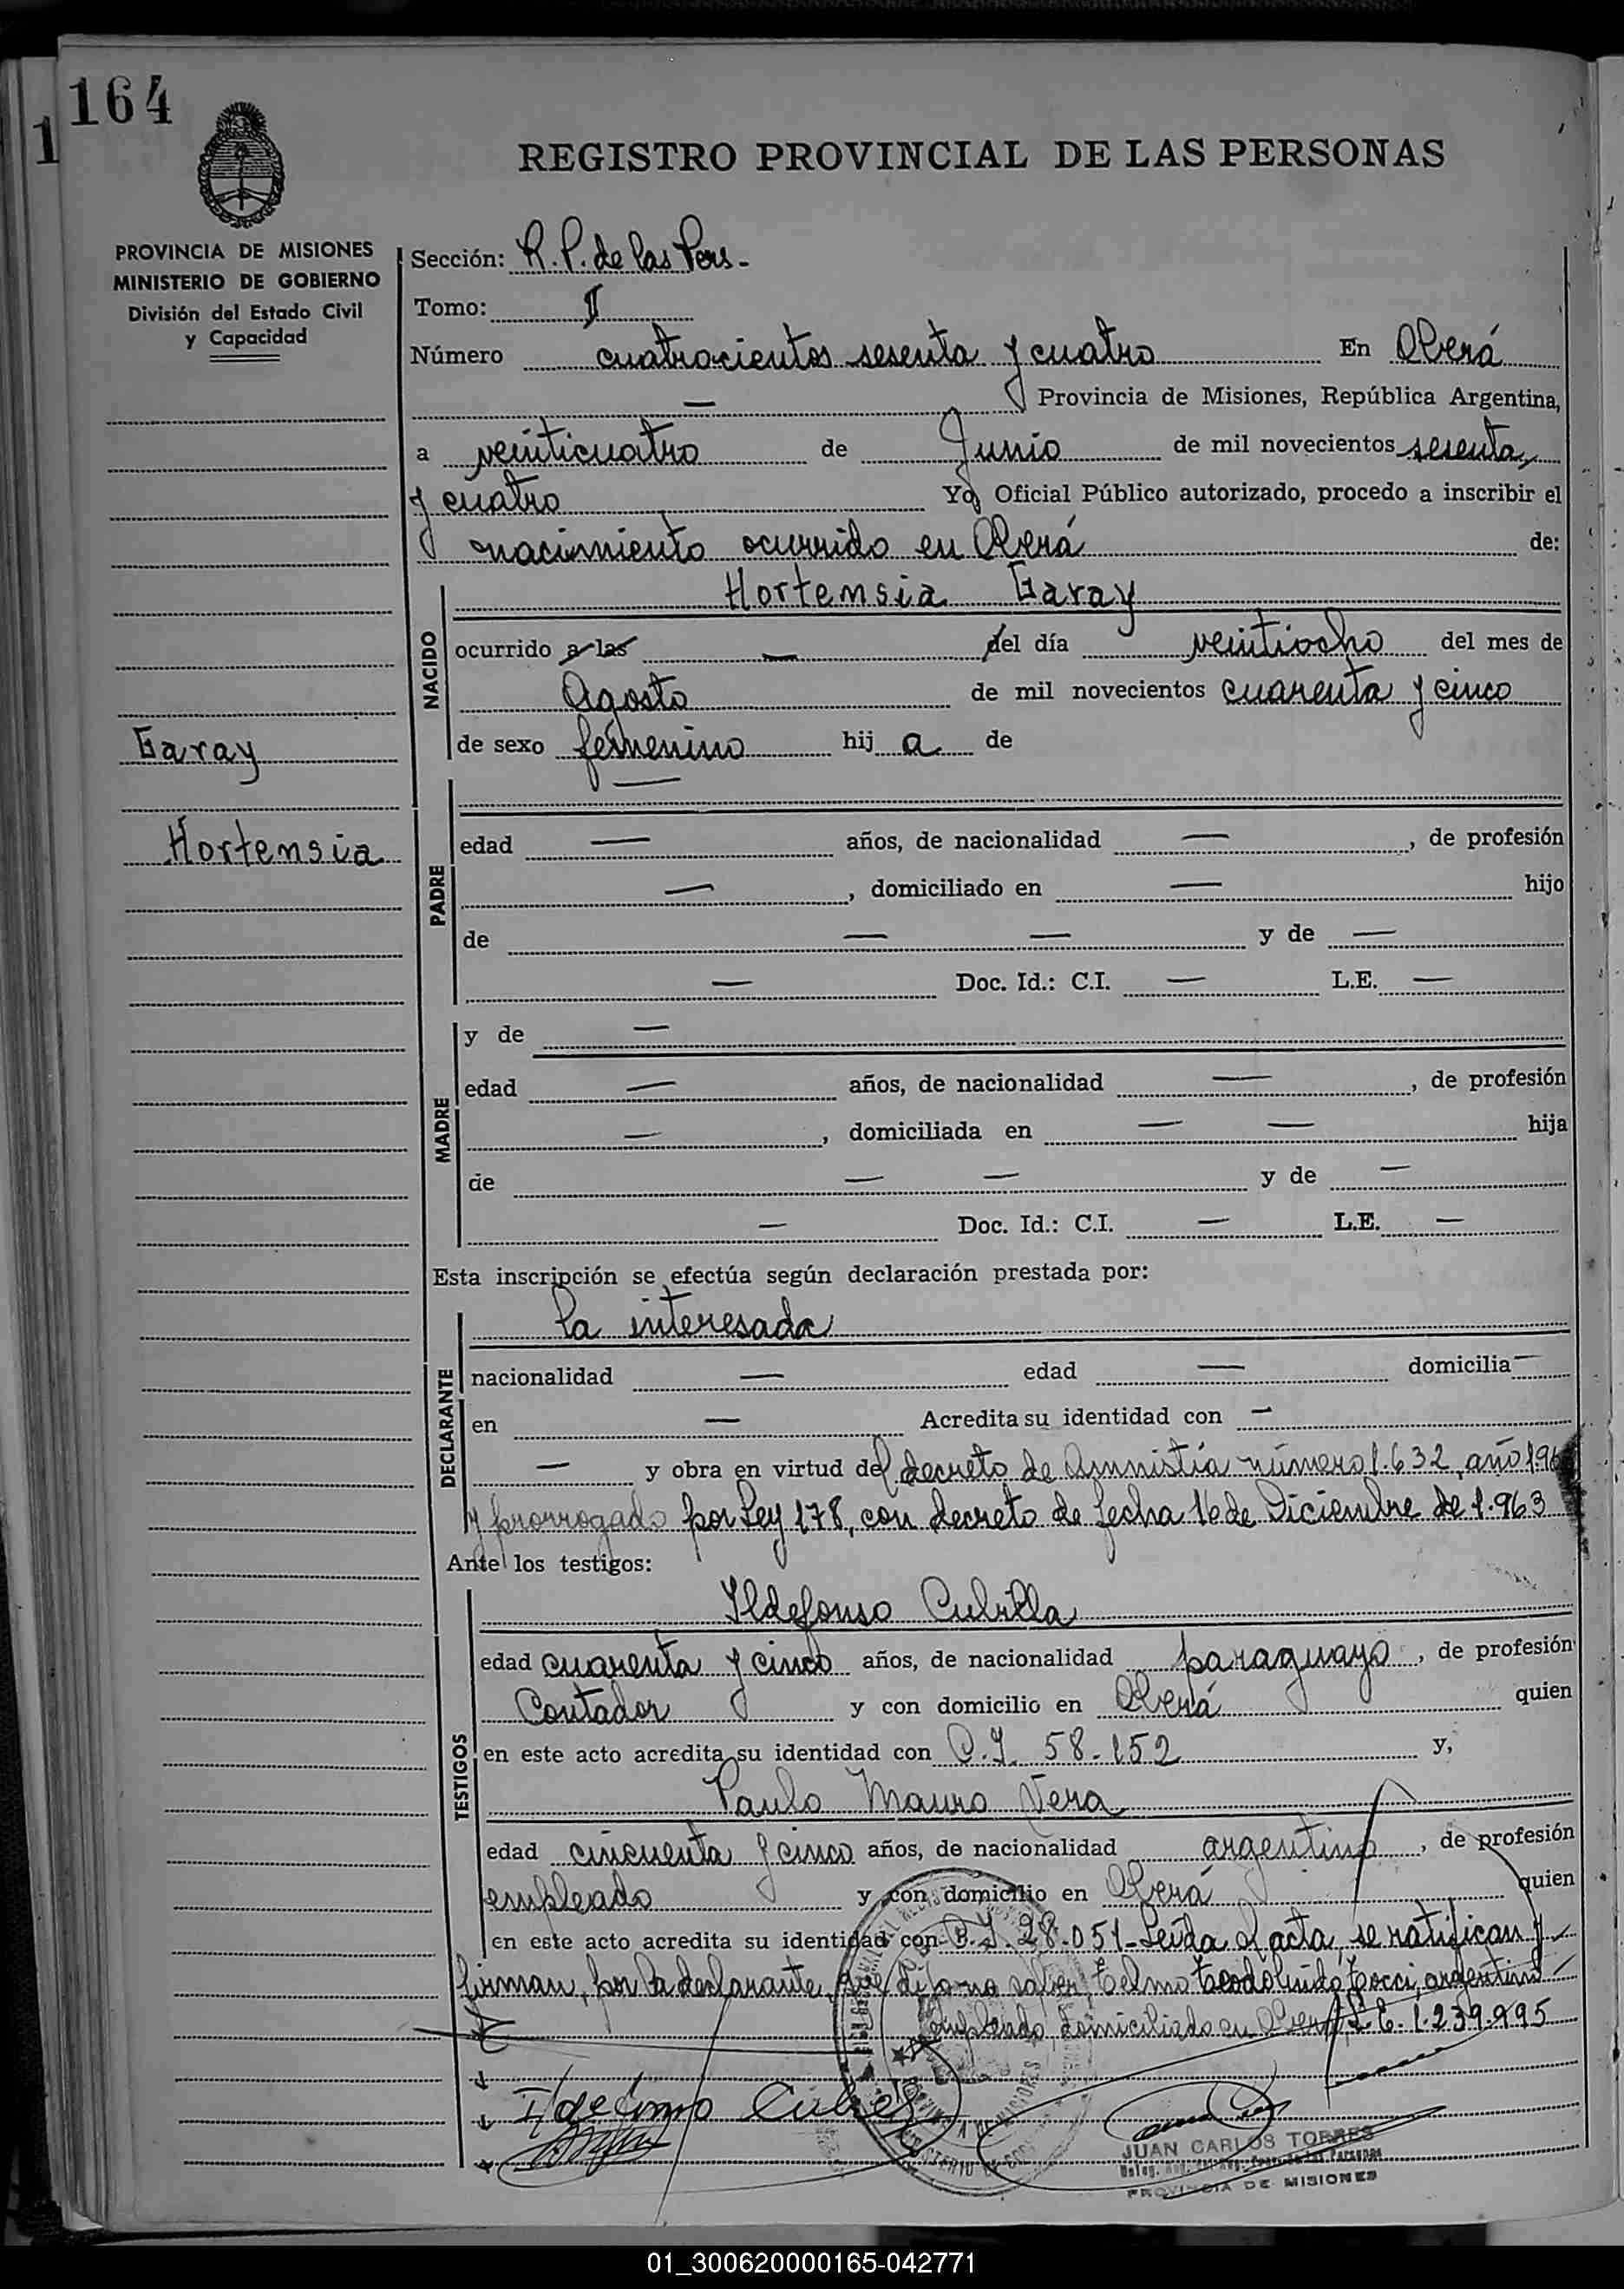 164
1
REGISTRO PROVINCIAL DE LAS PERSONAS
PROVINCIA DE MISIONES
MINISTERIO DE GOBIERNO
División del Estado Civil
y Capacidad
Garay
Hortensia
Sección: R. P. de las Pers-
Tomo: II
Número cuatrocientos sesenta y cuatro En Oberá
— Provincia de Misiones, República Argentina,
a veinticuatro de Junio de mil novecientos sesenta
y cuatro Yo Oficial Público autorizado, procedo a inscribir el
nacimiento ocurrido en Oberá de:
NACIDO
Hortensia Garay
ocurrido a las — del día veintiocho del mes de
Agosto de mil novecientos cuarenta y cinco
de sexo femenino hij a de
PADRE
—
edad — años, de nacionalidad —, de profesión
—, domiciliado en — hijo
de — — y de —
— Doc. Id.: C.I. — L.E. —
MADRE
y de —
edad — años, de nacionalidad —, de profesión
—, domiciliada en — — hija
de — — y de —
— Doc. Id.: C.I. — L.E. —
Esta inscripción se efectúa según declaración prestada por:
DECLARANTE
la interesada
nacionalidad — edad — domicilia —
en — Acredita su identidad con —
— y obra en virtud del decreto de Amnistía número 1.632, año 196
y prorrogado por Ley 178, con decreto de fecha 16 de Diciembre de 1.963
Ante los testigos:
TESTIGOS
Ildefonso Cubilla
edad cuarenta y cinco años, de nacionalidad paraguayo, de profesión
Contador y con domicilio en Oberá quien
en este acto acredita su identidad con C.I. 58.152 y,
Paulo Mauro Vera
edad cincuenta y cinco años, de nacionalidad argentino, de profesión
empleado y con domicilio en Oberá quien
en este acto acredita su identidad con C.I. 28.051- Leída el acta, se ratifican y
firman, por la declarante, que dijo no saber, Telmo Teodolindo Tocci, argentino
empleado domiciliado en Oberá L.E. 1.239.995
Ildefonso
JUAN CARLOS TORRES
PROVINCIA DE MISIONES
01_300620000165-042771